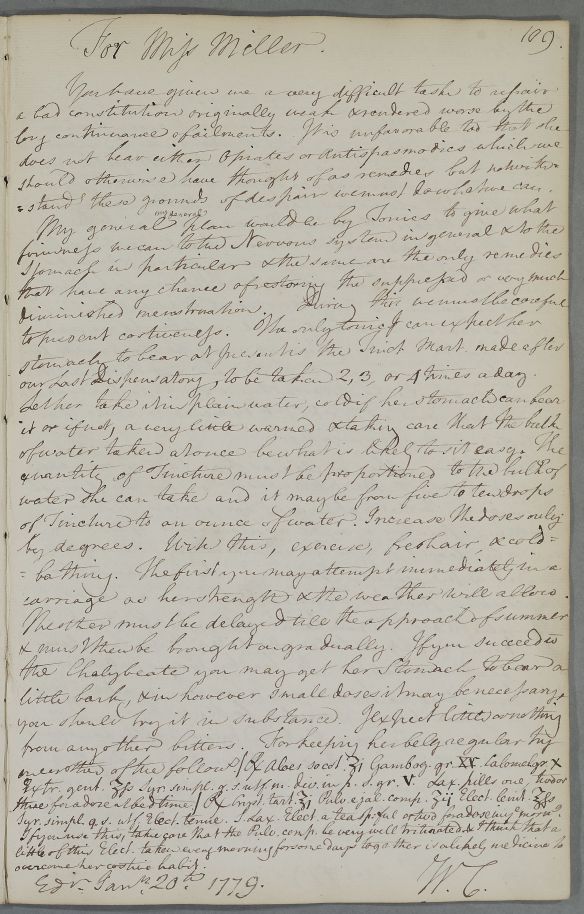 109.
For Miss Miller.
You have given me a very difficult task to repair
a bad constitution originally weak & rendered worse by the
long continuance of ailments. It is unfavorable too that she
does not bear either Opiates or Antispasmodics which we
should otherwise have thought of as remedies but notwith-
=stand.g these grounds of despair we must do what we can.
My general plan would be by Tonics to give what
firmness we can to the Nervous system in general & to the
Stomach in particular & the same are the only remedies
that have any chance of restoring the suppress'd or very much
diminished menstruation. During this we must be careful
to prevent costiveness. The only tonic I can expect her
stomach to bear at present is the Tinct. Mart. made after
our Last Dispensatory, to be taken 2, 3, or 4 times a day.
Let her take it in plain water, cold if her stomach can bear
it or if not, a very little warmed & taking care that the bulk
of water taken at once be what is likely to sit easy. The
quantity of Tincture must be proportioned to the bulk of
water she can take and it may be from five to ten drops
of Tincture to an ounce of water. Increase the doses only
by degrees. With this, exercise, fresh air & cold=
=bathing. The first you may attempt immediately in a
carriage as her strength & the weather will allow.
The other must be delayed till the approach of summer
& must then be brought on gradually. If you succeed in
the Chalybeate you may get her Stomach to bear a
little bark, & in however small doses it may be necessary
you should try it in substance. I expect little or nothing
from any other bitters. For keeping her belly regular try
one or other of the follow.g / ℞ Aloes socot. ʒi Gambog. gr. XV. Calomel gr. X
Extr. gent. ʒſs Syr. simpl. q. s. ut f. m. div. in p. s. gr. V. Lax. pills one, two or
three for a dose at bed time / ℞ Cryst. tart. ʒi Pulv. e jal. comp. ʒii Elect. lenit. ℥ſs
Syr. simpl. q. s. ut f. Elect. tenue. S. Lax. Elect. a tea spoful or two for a dose in y.e morn.g
If you use this, take care that the Pulv. comp. be very well triturated & I think that a
little of this Elect. taken every morning for some days together is a likely medicine to
overcome her costive habit.
Edr. Jany. 20.th 1779.
W. C.